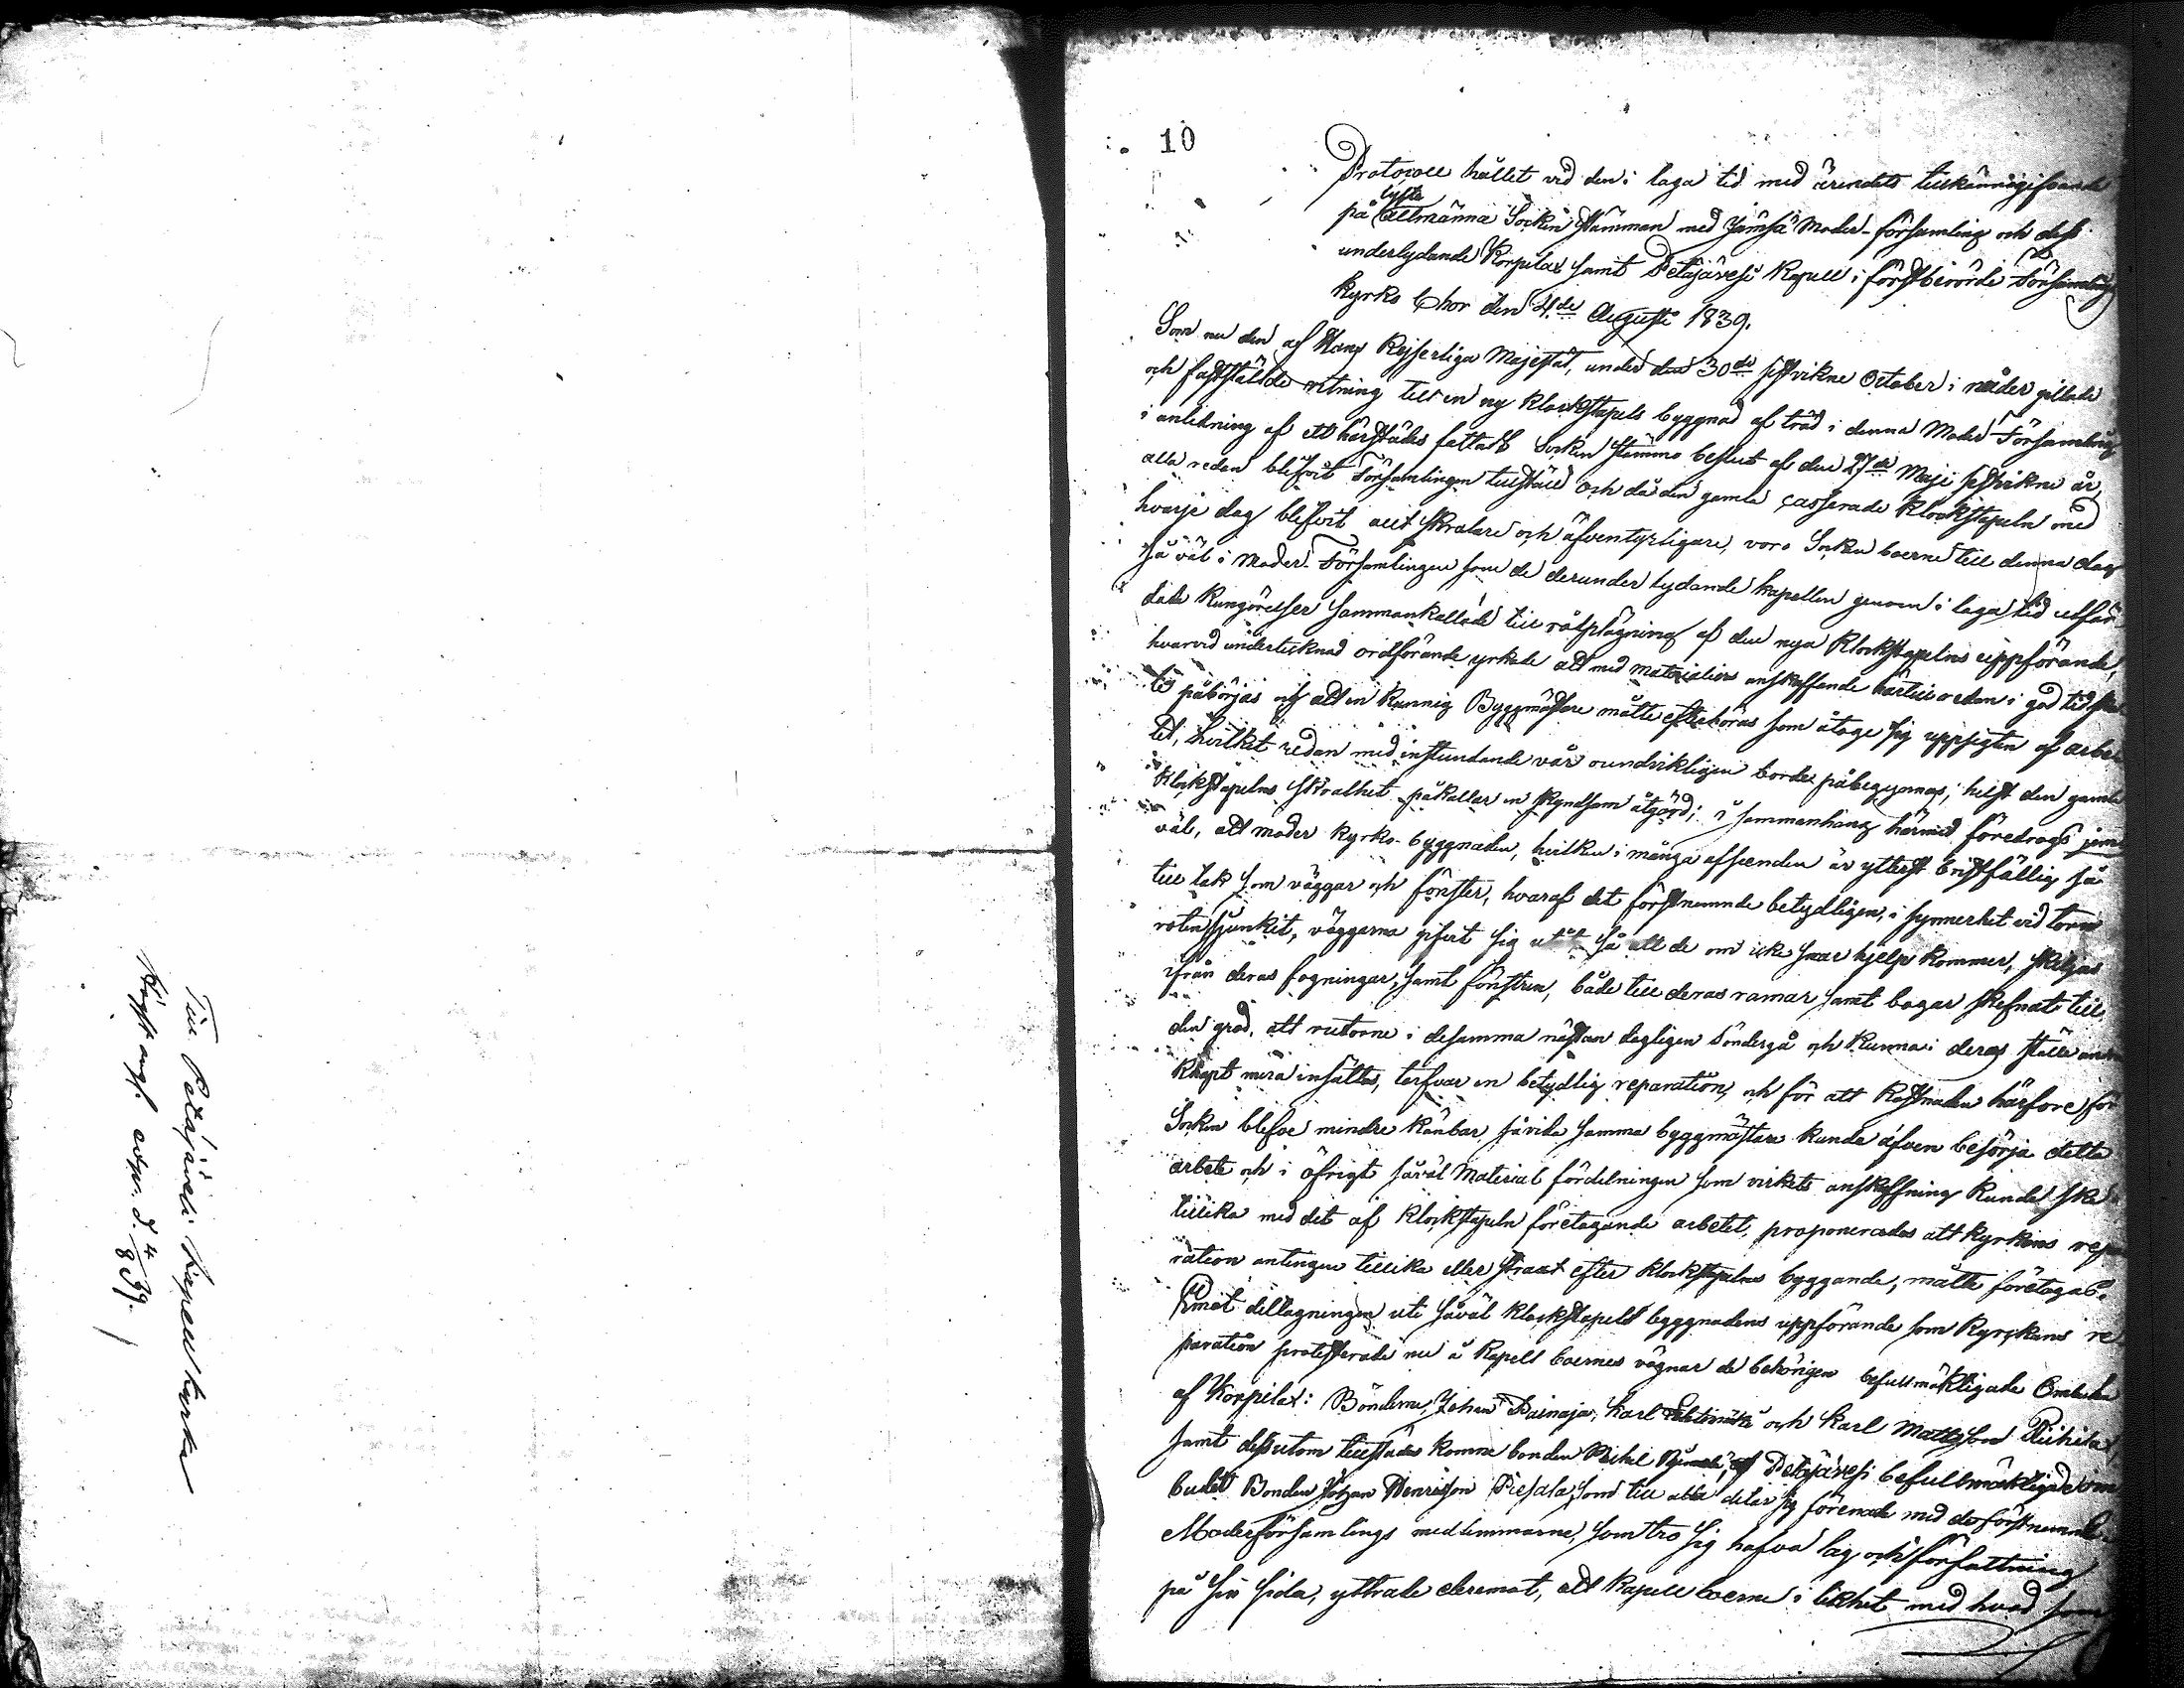 Till Petäjävesi Kapell kyrka
högst angl. adpr. d. 4/8 39.
10
Protocoll hållet vid den i laga tid med ärendets tillkännagifvande
lyste
på allmänna Sockne Stämman med Jämsä Moder-församling och dess
underlydande Korpilax samt Petäjävesi Kapell i förstberörde Församlings
kyrko Chor den 4de Augusti 1839.
Som nu den af Hans Kejserliga Majestät, under den 30de sistvikne October i nåder gillade
och fastställde ritning till en ny Klockstapels byggnad af träd i denna Moder Församling
i anledning af ett härstädes fattadt Sockne Stämmo beslut af den 27de Maji sistvikne år,
alla redan blifvit Församlingen tillställd och då den gamla casserade Klockstapeln med
hvarje dag blifvit allt skralare och äfventyrligare, voro Socken boerne till denna dag
så väl i Moder-Församlingen som de derunder lydande Kapellen genom i laga tid utfär-
dade Kungörelser sammankallade till rådplägning af den nya Klockstapelns uppförande,
hvarvid undertecknad ordförande yrkade att med materialiers anskaffande härtill redan i god tid skul-
le påbörjas och att en kunnig Byggmästare måtte efterhöras som åtage sig uppsigten af arbe-
tet, hvilket redan med instundande vår oundvikligen borde påbegynnas, helst den gamla
Klockstapelns skralhet påkallar en skyndsam åtgärd; i sammanhang härmed föredrogs jem-
väl, att moder kyrko-byggnaden, hvilken i många afseenden är ytterst bristfällig så
till tak som väggar och fönster, hvaraf det förstnemnde betydligen, i synnerhet vid torn
roten sjunkit, väggarna gifvit sig utåt så att de om icke snar hjelp kommer, skiljas
ifrån deras fogningar, samt fönstren, både till deras ramar samt bagar skefnat till
den grad, att rutorne i desamma nästan dagligen söndergå och kunna i deras ställe andra
knapt mera insättas, tarfvar en betydlig reparation, och för att kostnaden härfore för
Socken blefve mindre känbar, såvida samma byggmästare kunde äfven besörja detta
arbete och i öfrigt såväl Material fördelningen som virkets anskaffning kunde ske
tillika med det af Klockstapeln företagande arbetet, proponerades att kyrkans repa-
ration antingen tillika eller straxt efter Klockstapelns byggande, måtte företagas.
Emot delltagningen uti såväl Klockstapels byggnadens uppförande som Kyrkans re-
paration protesterade nu å Kapell boernes vägnar de behörigen befullmäktigade Ombuden
af Korpilax: Bönderne, Johan Parnaja, Karl och Karl Mattsson Riihilax
samt dessutom tillstädes komne bonden Mickel af Petäjävesi befullmäktigade om-
budet Bonden Johan Henricsson Piesala, som till alla delar sig förenade med de förstnemnde.
Moderförsamlings medlemmarne, som tro sig hafva lag och författning
på sin sida, yttrade deremot, att Kapell boerne i likhet med hvad som